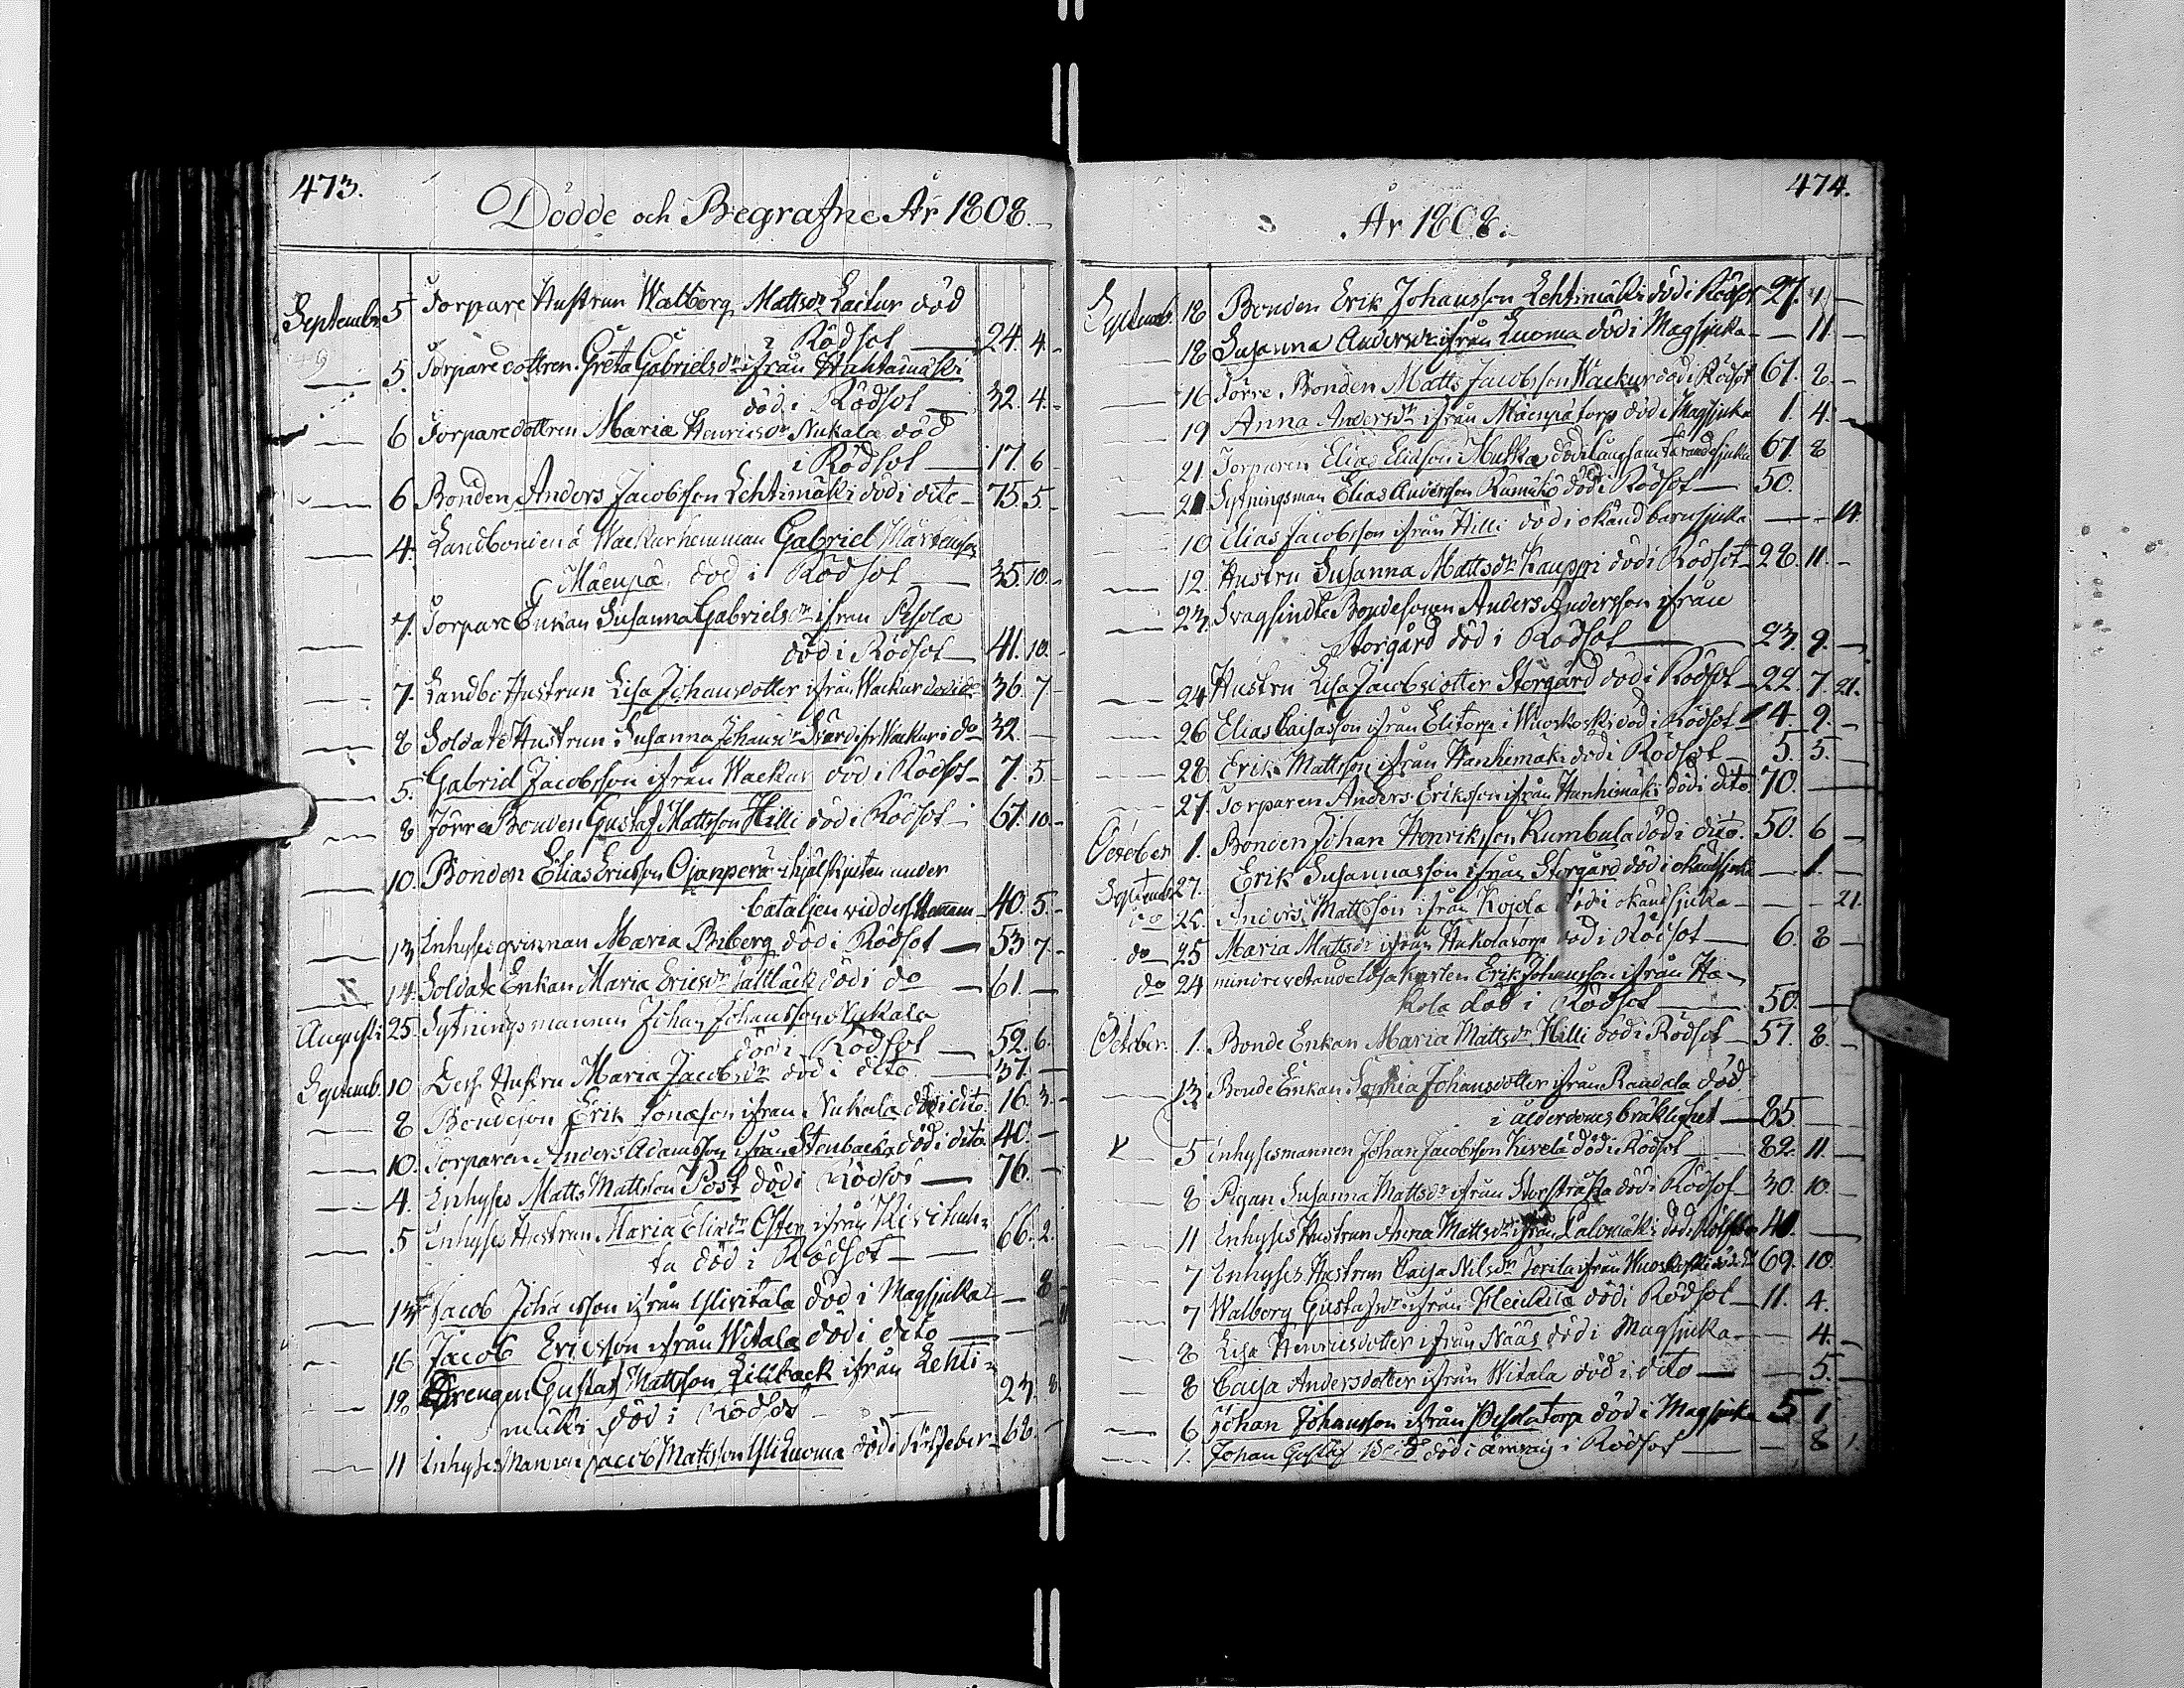 473.
Dödde och Begrafne År 1808.
Septembr. 5 Torpare Hustrun Walborg Mattsdr Lackur död
i Rödsot — 24. 4.
— 5. Torparedottren Greta Gabrielsdr ifrån Hahtamäki
död i Rödsot — 32. 4.
— 6 Torparedottren Maria Henricsdr Nukala död
i Rödsot — 17. 6
— 6 Bonden Anders Jacobsson Lehtimäki död i dito — 75. 5
— 4. Landbonden å Wackurhemman Gabriel Mårtensson
Mäenpä död i Rödsot — 35. 10.
— 7. Torpare Enkan Susanna Gabrielsdr ifrån Pesola
död i Rödsot — 41. 10.
— 7. Landbo Hustrun Lisa Johansdotter ifrån Wackur död i do 36. 7
— 8 Soldate Hustrun Susanna Johansdr Svärd ifr Wackur i do 32 —
— 5. Gabriel Jacobsson ifrån Wackur död i Rödsot — 7. 5
— 8 Förre Bonden Gustaf Mattsson Hilli död i Rödsot — 67. 10
— 10. Bonden Elias Ericsson Ojanperä ihjälskjuten under
bataljen vid dess Hemman — 40. 5.
— 13 Enhyses qvinnan Maria Biberg död i Rödsot — 53 7
— 14. Soldate Enkan Maria Ericsdr död i do — 61. —
Augusti 25. Sytningsmannen Johan Johansson Nukala
död i Rödsot — 52. 6.
Septemb. 10 Dess Hustru Maria Jacobsdr död i dito — 37. —
— 8 Bondeson Erik Jonasson ifrån Nukala död i dito 16. 3.
— 10. Torparen Anders Adamsson ifrån Stenbacka död i dito 40. —
— 4. Enhyses Matts Mattsson Post död i Rödsot — 76. —
— 5 Enhyses Hustrun Maria Eliædr Öster ifrån Kivihuh=
ta död i Rödsot — 66. 2.
— 13 Jacob Johansson ifrån Ylivitala död i Magsjuka — 8
— 16 Jacob Ericsson ifrån Witala död i dito — — 11
— 18 Drengen Gustaf Mattsson Lillback ifrån Lehti=
mäki död i Rödsot — 23. 8
— 11 Enhyses Mannen Jacob Mattsson Yliluoma död i — 66. —
474.
År 1808.
Septemb. 18 Bonden Erik Johansson Lehtimäki död i Rödsot 27. 1 —
— 18 Susanna Andersdr ifrån Luoma död i Magsjuka — 11 —
— 16 Förre Bonden Matts Jacobsson Wackur död i Rödsot 67. 2. —
— 19 Anna Andersdr ifrån Mäenpä torp död i Magsjuka 1. 4. —
— 21. Torparen Elias Eliasson Mukka död i långsam tärandesjuka 67. 8
— 21 Sytningsman Elias Andersson död i Rödsot — 50.
— 10 Elias Jacobsson ifrån Hilli död i okänd barnsjuka — — 14.
— 12. Hustru Susanna Mattsdr Kauppi död i Rödsot 28. 11. —
— 23. Svagsindte Bondesonen Anders Andersson ifrån
Storgård död i Rödsot — 23. 9. —
— 24 Hustru Lisa Jacobsdotter Storgård död i Rödsot — 22. 7. 21.
— 26 Elias Cajsasson ifrån Elitorp i Wuoskoski död i Rödsot 4. 9. —
— 28 Erik Mattsson ifrån Hanhimäki död i Rödsot — 5. 5. —
— 27. Torparen Anders Eriksson ifrån Hanhimäki död i dito 70. —
October 1. Bonden Johan Henriksson Kumbula död i dito. 50. 6 —
Septemb 27. Erik Susannasson ifrån Storgård död i okändsjuka — 1. —
do 25. Anders Mattsson ifrån Kojola död i okändsjuka — — 21.
do 25 Maria Mattsdr ifrån Hakola torp död i Rödsot — 6. 8 —
do 24 mindre vetande Erik Johansson ifrån Ha=
kola död i Rödsot — 50. —
October. 1. Bonde Enkan Maria Mattsdr Hilli död i Rödsot — 57. 8. —
— 13 Bonde Enkan Sophia Johansdotter ifrån Randala död
i ålderdomsbräklighet — 85 —
— 5 Enhysesmannen Johan Jacobsson Kivelä död i Rödsot — 82. 11. —
— 8 Pigan Susanna Mattsdr ifrån Storstråka död i Rödsot — 30. 10. —
— 11 Enhyses Hustrun Anna Mattsdr ifrån Salomäki död i Rödsot 40. —
— 7 Enhyses Hustrun Cajsa Nilsdr Torila ifrån Wuoskoski död i do 69. 10.
— 7 Walborg Gustafsdr ifrån Heickilä död i Rödsot — 11. 4.
— 8 Lisa Henricsdotter ifrån Nääs död i Magsjuka — — 4. —
— 8 Cajsa Andersdotter ifrån Witala död i dito — — 5. —
— 6 Johan Johansson ifrån Pesola torp död i Magsjuka 5 1
— 1. Johan Gustaf död i i Rödsot — — 8 1.